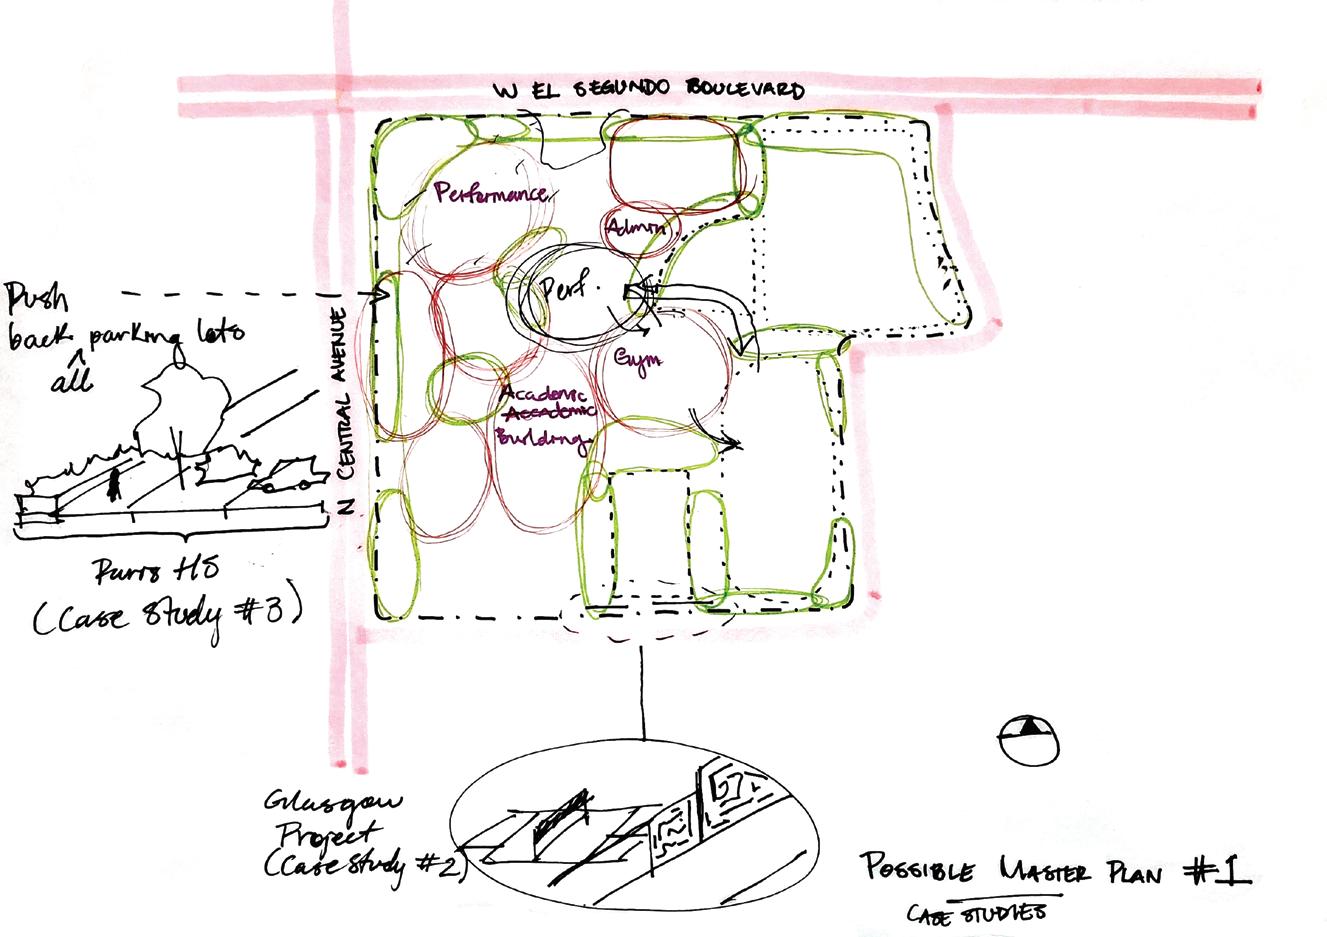 W EL SEGUNDO BOULEVARD
Performance
Admin
Perf.
Push
back parking lots
all
N CENTRAL AVENUE
Gym
Academic
Building
HS
(Case Study #3)
Glasgow
Project
(Case Study #2)
POSSIBLE MASTER PLAN #1
CASE STUDIES